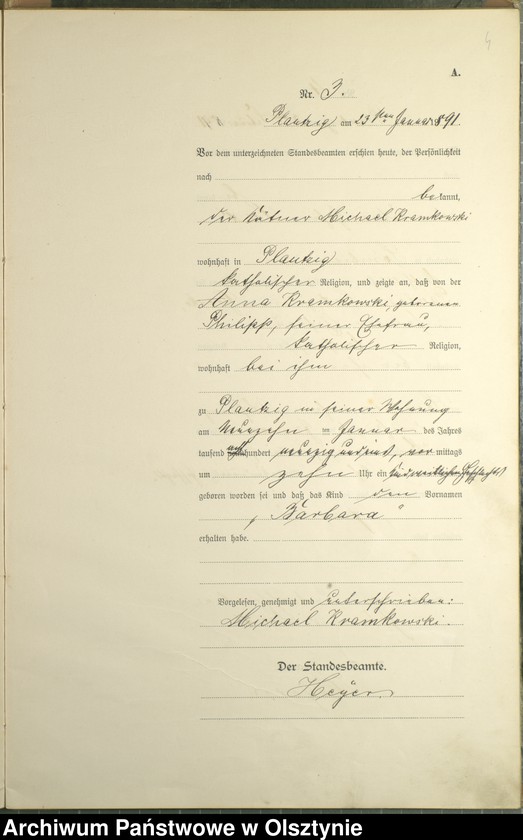 A.
Nr. 3.
Plautzig am 23 ten Januar 1891
Vor dem unterzeichneten Standesbeamten erschien heute, der Persönlichkeit
nach
bekannt,
der Kätner Michael Kramkowski
wohnhaft in Plautzig
katholischer Religion, und zeigte an, daß von der
Anna Kramkowski, geborenen
Philipp, seiner Ehefrau,
katholischer Religion,
wohnhaft bei ihm
zu Plautzig in seiner Wohnung
am Neunzehn ten Januar des Jahres
tausend acht hundert neunzig und eins, vor mittags
um zehn Uhr ein Kind weiblichen Geschlechts
geboren worden sei und daß das Kind den Vornamen
„Barbara“
erhalten habe.
Vorgelesen, genehmigt und unterschrieben:
Michael Kramkowski.
Der Standesbeamte.
Heyer.
Archiwum Państwowe w Olsztynie